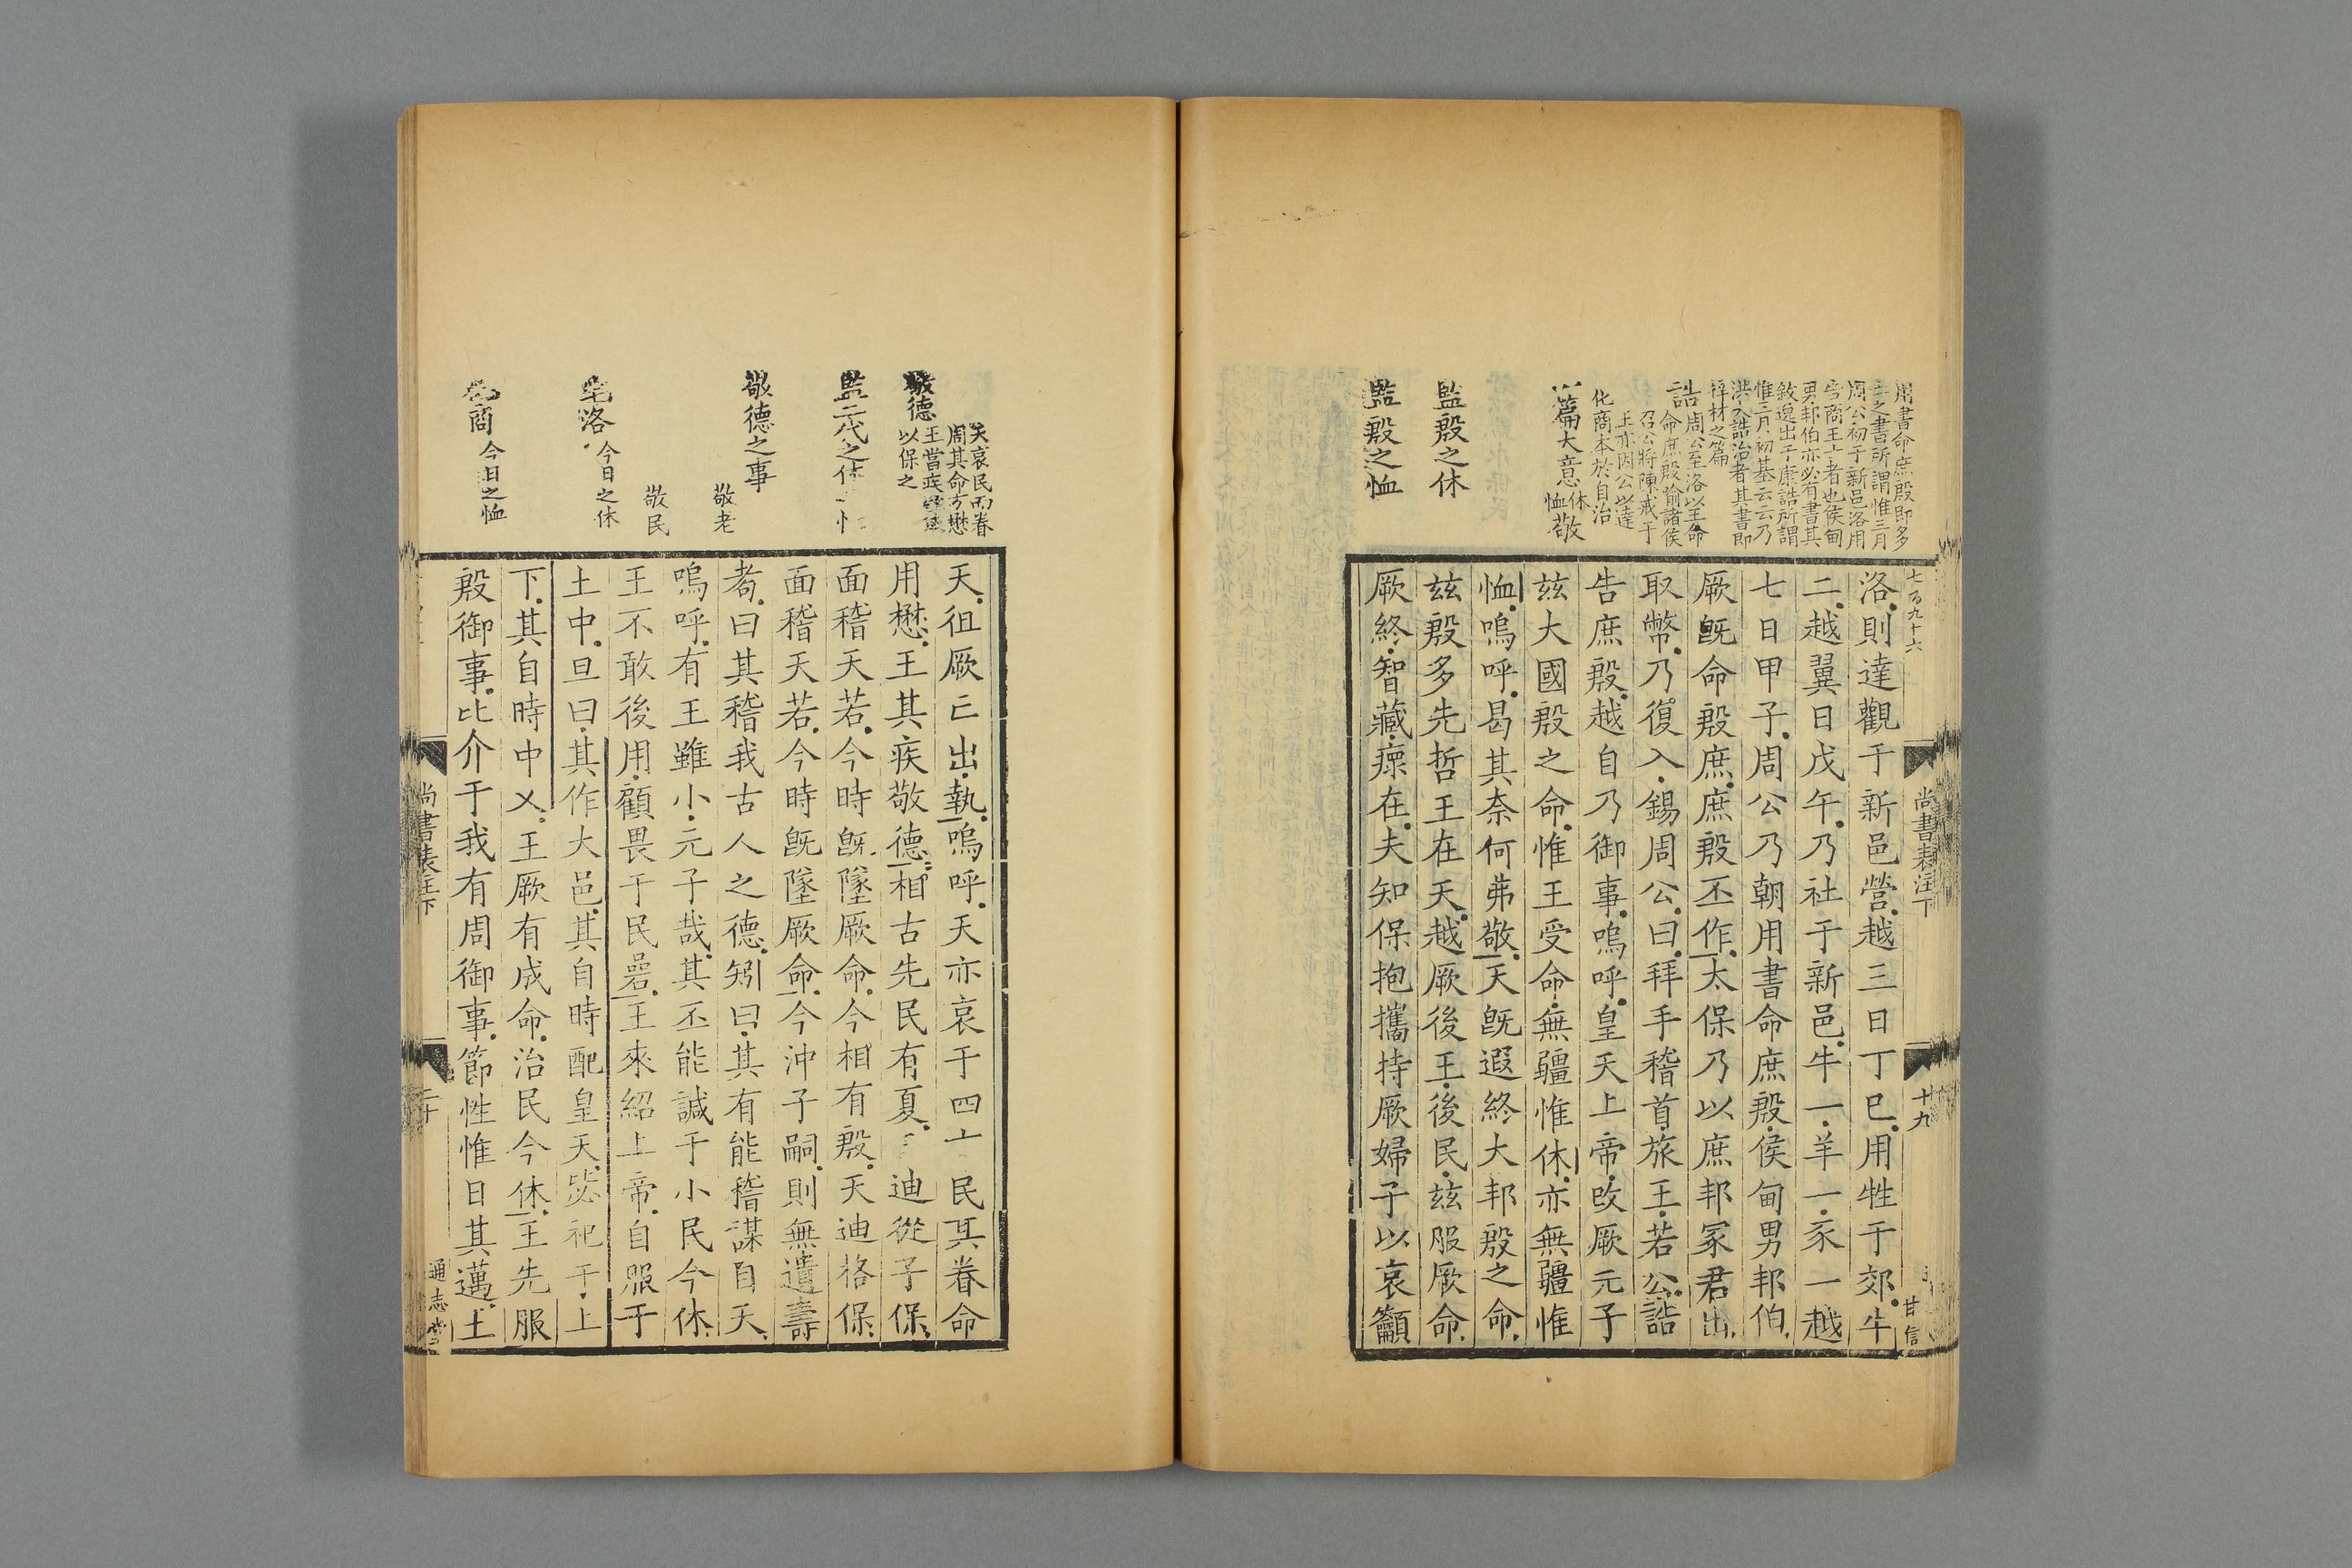 七百九十六
尚書表注下
十九
甘信
用書命庶殷即多
士之書所謂惟三月
周公初于新邑洛用
告商王士者也侯甸
男邦伯亦必有書其
敘遼出于康誥所謂
惟三月初基云云乃
洪大誥治者其書即
梓材之篇
誥
周公至洛以王命
命庶殷諭諸侯
召公將陳戒于
王亦因公以達
化商本於自治
篇大意
休
恤
敬
監殷之休
監殷之恤
洛則達觀于新邑營越三日丁巳用牲于郊牛
二越翼日戊午乃社于新邑牛一羊一豕一越
七日甲子周公乃朝用書命庶殷侯甸男邦伯
厥旣命殷庶庶殷丕作太保乃以庶邦冢君出
取幣乃復入錫周公曰拜手稽首旅王若公誥
告庶殷越自乃御事嗚呼皇天上帝改厥元子
玆大國殷之命惟王受命無疆惟休亦無疆惟
恤嗚呼曷其奈何弗敬天旣遐終大邦殷之命
玆殷多先哲王在天越厥後王後民玆服厥命
厥終智藏瘝在夫知保抱攜持厥婦子以哀籲
天哀民而眷
周其命方懋
王當疾敬德
以保之
敬德
監二代之休
敬德之事
敬老
敬民
宅洛
今日之休
商
今日之恤
天徂厥亡出執嗚呼天亦哀于四民其眷命
用懋王其疾敬德相古先民有夏迪從子保
面稽天若今時旣墜厥命今相有殷天迪格保
面稽天若今時旣墜厥命今沖子嗣則無遺壽
耇曰其稽我古人之德矧曰其有能稽謀自天
嗚呼有王雖小元子哉其丕能諴于小民今休
王不敢後用顧畏于民碞王來紹上帝自服于
土中旦曰其作大邑其自時配皇天毖祀于上
下其自時中乂王厥有成命治民今休王先服
殷御事比介于我有周御事節性惟日其邁王
尚書表注下
二十
通志堂